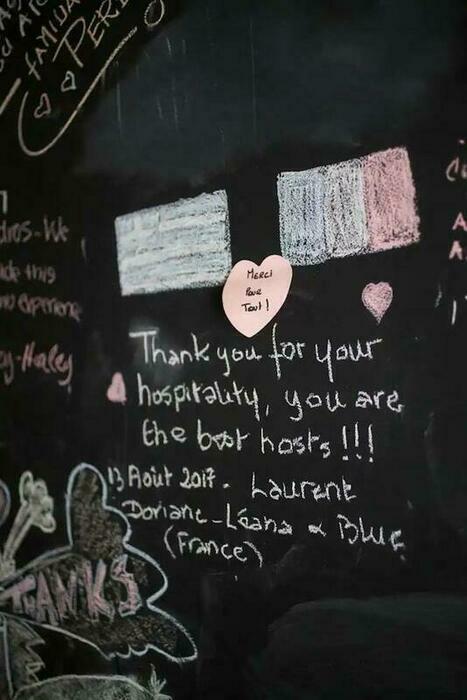 FAMILIA
PERE
dros-We
de this
experience
y-Harley
MERCI
POUR
TOUT!
Thank you for your
hospitality, you are
the best hosts!!!
13 Août 2017. Laurent
Doriane-Léana & Blue
(France)
TANKS